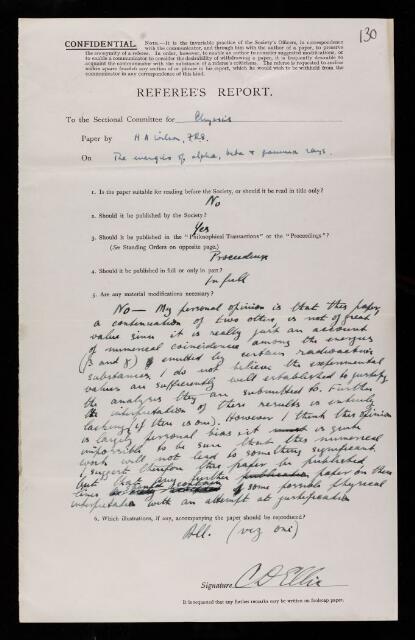 130
CONFIDENTIAL. NOTE.—It is the invariable practice of the Society's Officers, in correspondence
with the communicator, and through him with the author of a paper, to preserve
the anonymity of a referee. In order, however, to enable an author to consider suggested modifications, or
to enable a communicator to consider the desirability of withdrawing a paper, it is frequently desirable to
acquaint the communicator with the substance of a referee's criticisms. The referee is requested to enclose
within square brackets any section of or phrase in his report, which he would wish to be withheld from the
communicator in any correspondence of this kind.
REFEREE'S REPORT.
To the Sectional Committee for Physics
Paper by H A Wilson, FRS.
On The energies of alpha, beta & gamma rays.
1. Is the paper suitable for reading before the Society, or should it be read in title only?
No
2. Should it be published by the Society?
Yes
3. Should it be published in the "Philosophical Transactions" or the "Proceedings"?
(See Standing Orders on opposite page.)
Proceedings
4. Should it be published in full or only in part?
In full
5. Are any material modifications necessary?
No — My personal opinion is that this paper,
a continuation of two others, is not of great
value since it is really just an account
of numerical coincidences among the energies
emitted by certain radioactive
substances. I do not believe the experimental
values are sufficiently well established to justify
the analysis they are submitted to. Further
the interpretation of these results is entirely
lacking (if there is one). However I think this opinion
is largely personal bias, it is quite
impossible to be sure that this numerical
work will not lead to something significant.
I suggest therefore this paper be published
but that any further paper on these
lines some possible physical
interpretation with an attempt at justification
6. Which illustrations, if any, accompanying the paper should be reproduced?
All. (viz one)
Signature, C D Ellis
It is requested that any further remarks may be written on foolscap paper.